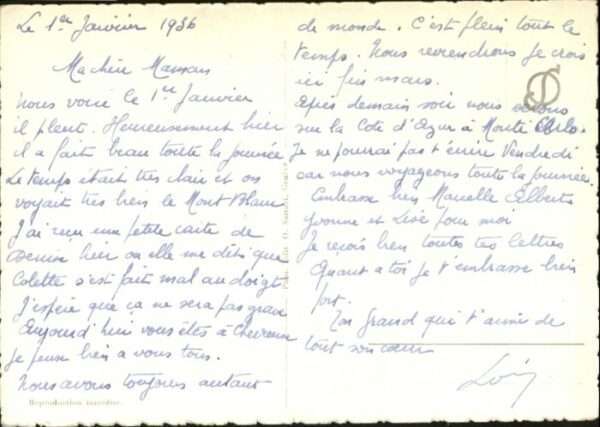 Le 1er Janvier 1936
Ma chère Maman
Nous voici le 1er Janvier
il pleut. Heureusement hier
il a fait beau toute la journée
Le temps était très clair et on
voyait très bien le Mont Blanc
J'ai reçu une petite carte de
hier ou elle me dit que
Colette s'est fait mal au doigt
J'espère que ça ne sera pas grave
Aujourd'hui vous êtes à
Je pense bien a vous tous.
Nous avons toujours autant
Reproduction interdite
de monde. C'est plein tout le
temps. Nous reviendrons je crois
ici fin mars.
Après demain soir nous serons
sur la Cote d'Azur à Monte Carlo.
Je ne pourrai pas t'écrire Vendredi
car nous voyageons toute la journée.
Embrasse bien Marcelle Albert
Yvonne et Lise pour moi
Je reçois bien toutes tes lettres
Quant a toi je t'embrasse bien
fort.
Ton grand qui t'aime de
tout son cœur